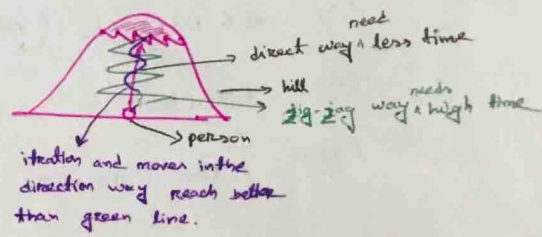 direct way ^need less time
hill
zig-zag way ^needs high time
person
itration and moves in the
direction way reach better
than green line.